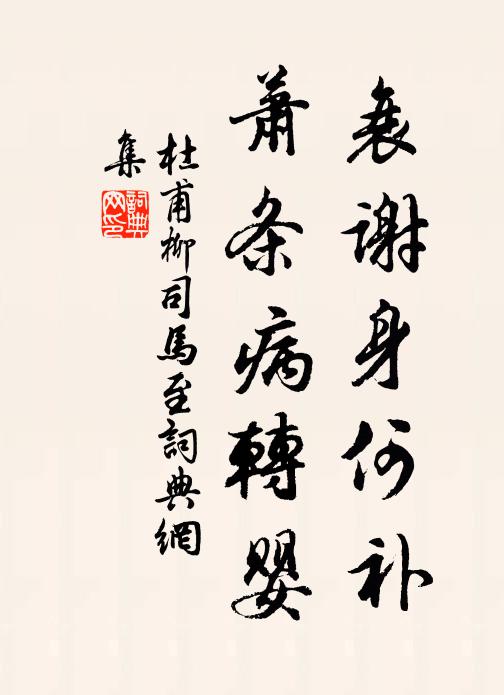 衰谢身何补
萧条病转婴
杜甫柳司馬至詞典網
集
詞典
网印